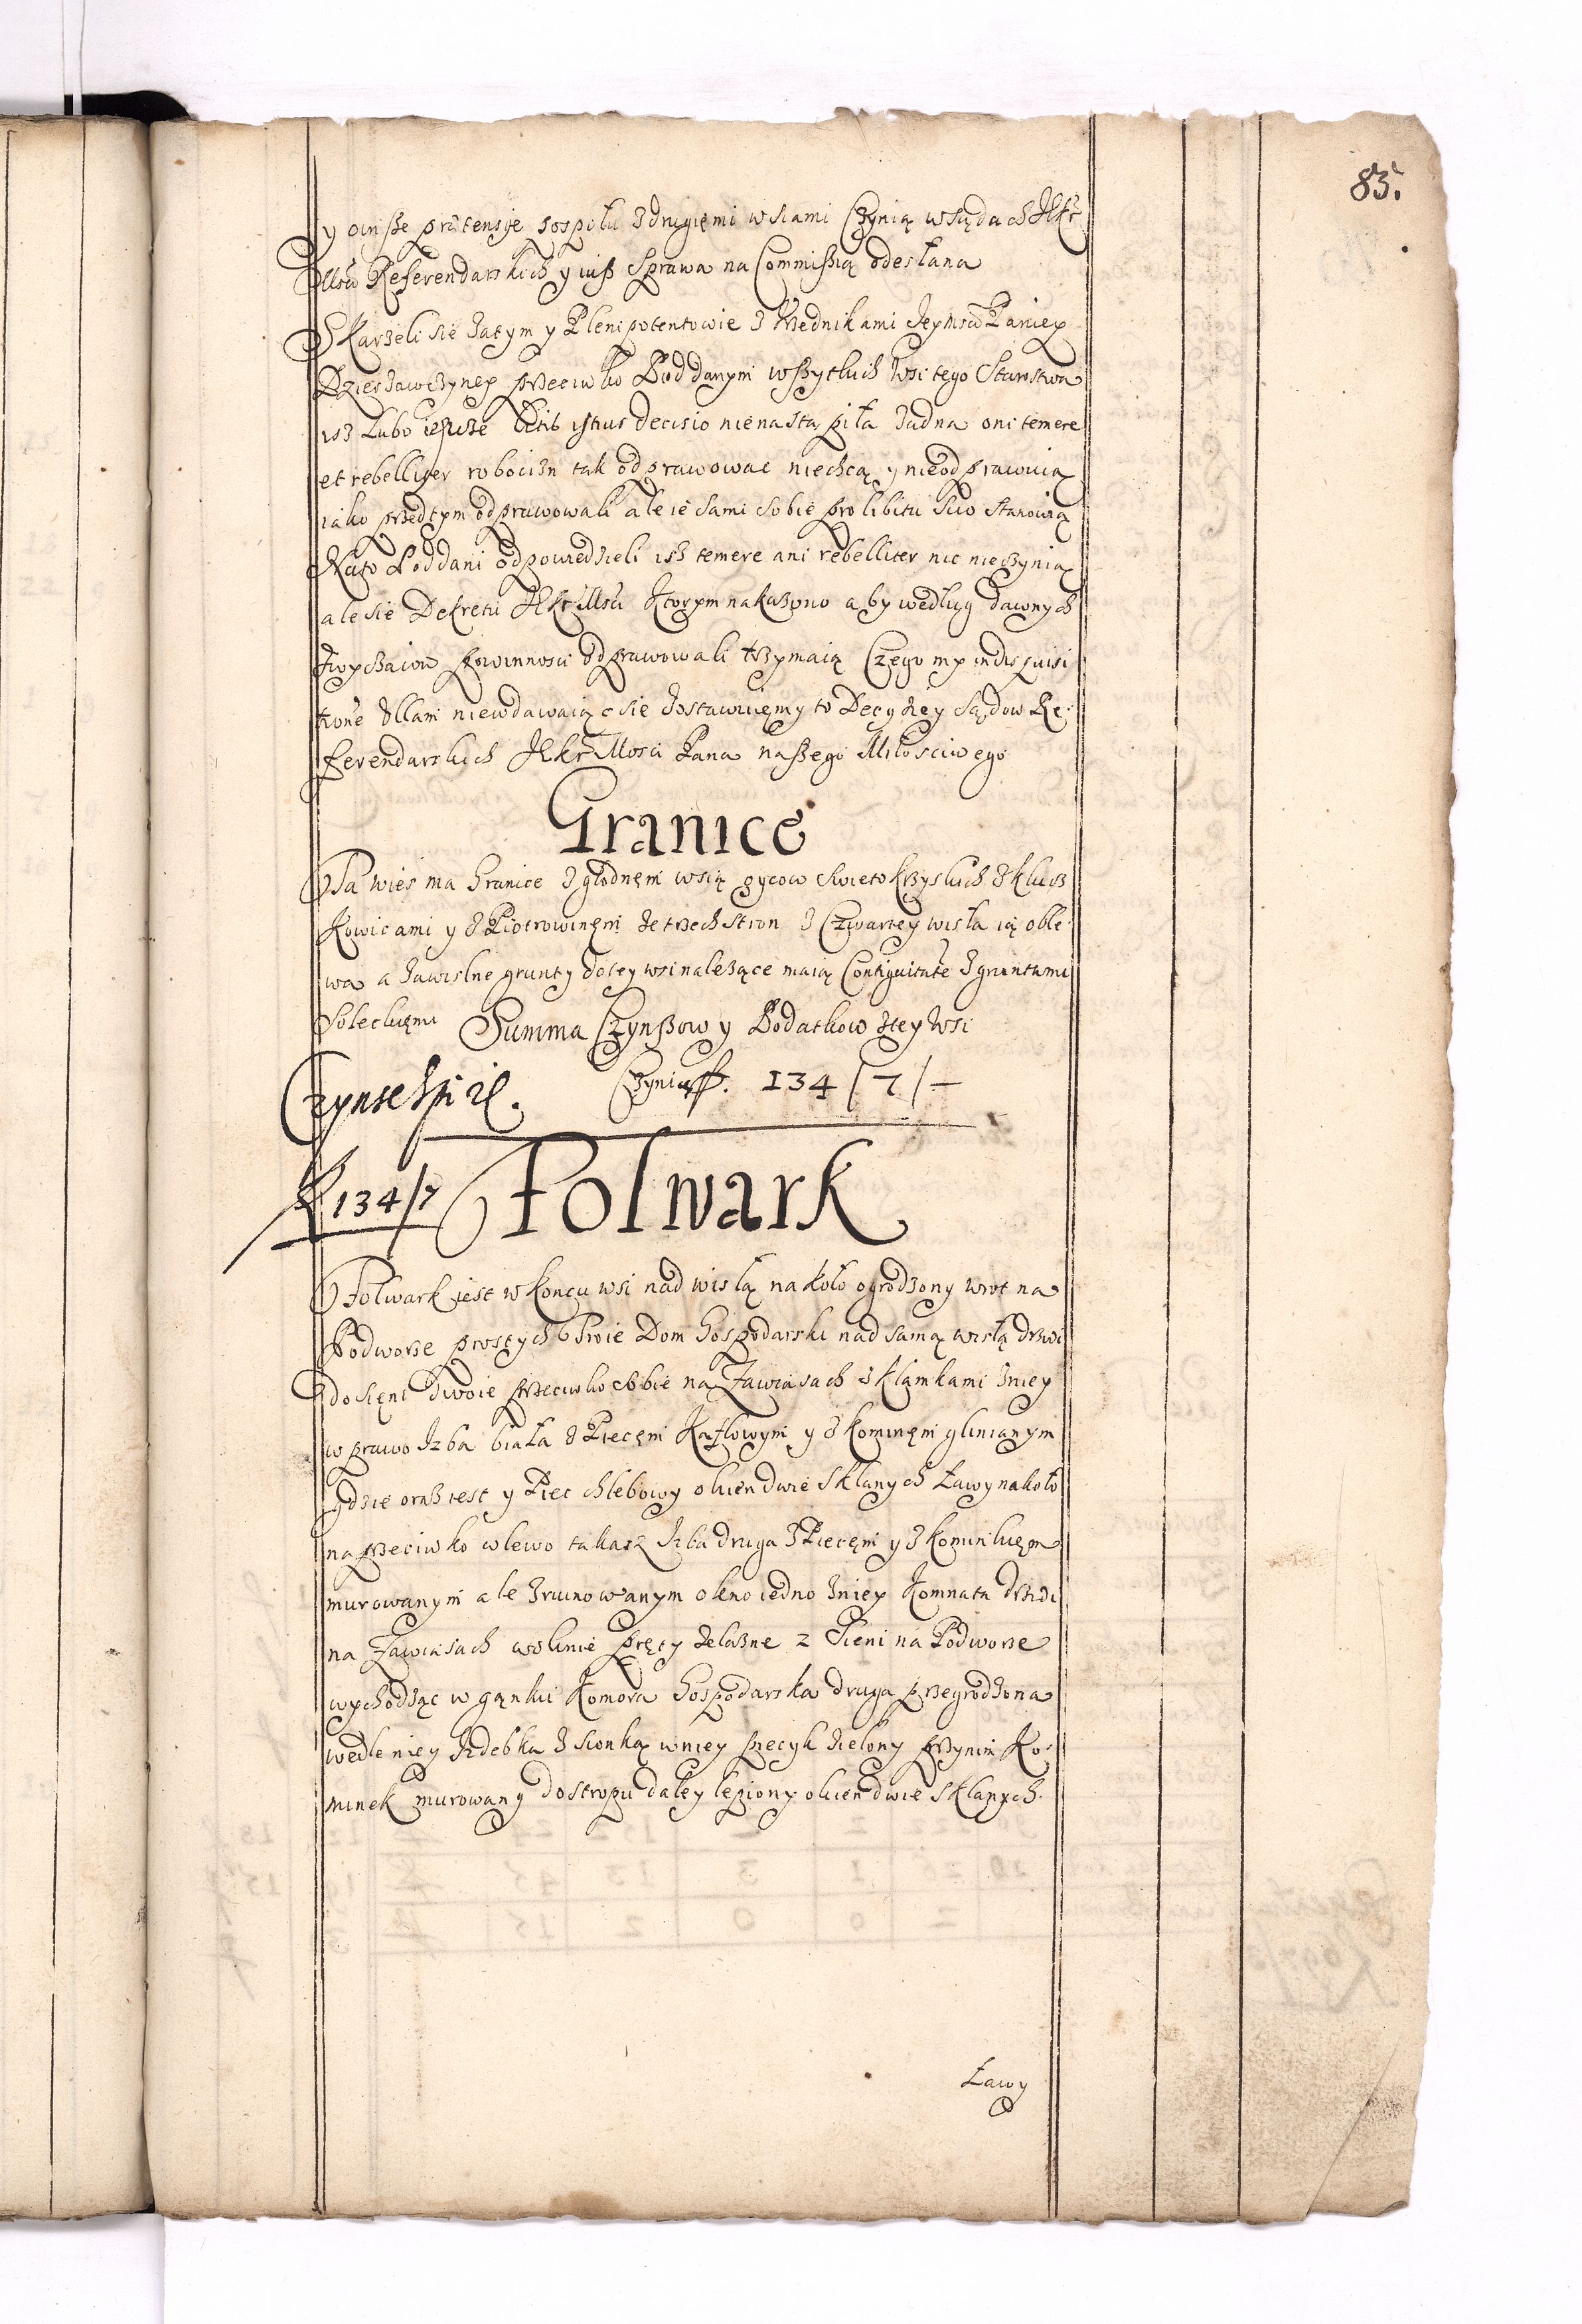 85.
y oinsze prætensye pospołu z drugięmi wsiami Czynią w sądach JKr
Mści Referendarskich y iusz sprawa na Commissią odesłana
Skarzeli się zatym y Plenipotentowie z Urzednikami Jeymści Paniey
Dzierzawczyney przeciwko Poddanym wszytkich wsi tego Starostwa
isz lubo ieszcze litis istius decisio nie nastąpiła zadna oni temere
et rebelliter robocizn tak odprawować niechcą y nieodprawuią
iako przedtym odprawowali ale ie sami sobie pro libitu suo stanowią
Na to Poddani odpowiedzieli isz temere ani rebelliter nic nieczynią
ale się Dekretu JKr Mści Ktorym nakazono aby według dawnych
zwyczaiow powinnosci odprawowali trzymaią Czego my in disquisi
tione ullam niewdawaiąc się zostawuięmy to Decyzyey Sądow Re:
ferendarskich JKr Mości Pana naszego Miłosciwego
Granice
Ta wies ma Granice z głodnęm wsią oycow Swietokrzyskich z Klucz
kowicami y z Piotrowinęm ze trzech stron z Czwartey wisła ią oble:
wa a zawislne grunty do tey wsi nalezące maią Contiguitatē z gruntami
Soleckięmi Summa Czynszow y Podatkow z tey wsi
Czyni f. 134 / 7 / —
Czynsch
f 134/7
Folwark
Folwark iest w Koncu wsi nad wisłą na koło ogrodzony wrot na
Podworze prostych Troie Dom Gospodarski nad samą wisłą drzwi
do sięni dwoie przeciwko sobie na zawiasach z klamkami z niey
w prawo Izba biała z Piecęm Kaflowym y z kominęm glinianym
gdzie oraz iest y Piec chlebowy okien dwie sklanych ławy na koło
naprzeciwko w lewo takasz Izba druga z Piecęm y z kominkięm
murowanym ale zruinowanym okno iedno z niey Komnata drzwi
na zawiasach w oknie pręty zelazne z Sieni na Podworze
wychodząc w gąnku Komora Gospodarska druga przegrodzona
wedle niey Izdebka z sionką w niey piecyk zielony przynim Ko:
minek murowany do stropu daley lepiony okien dwie sklanych.
Ławy